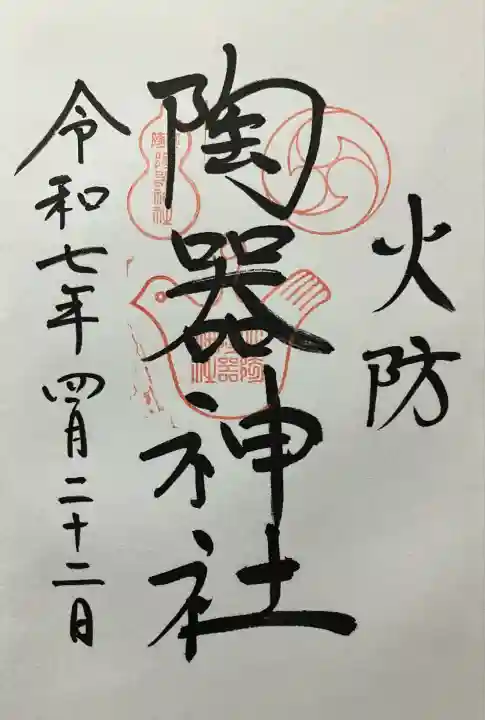 火防
陶器神社
令和七年四月二十二日
陶器神社
陶器神社